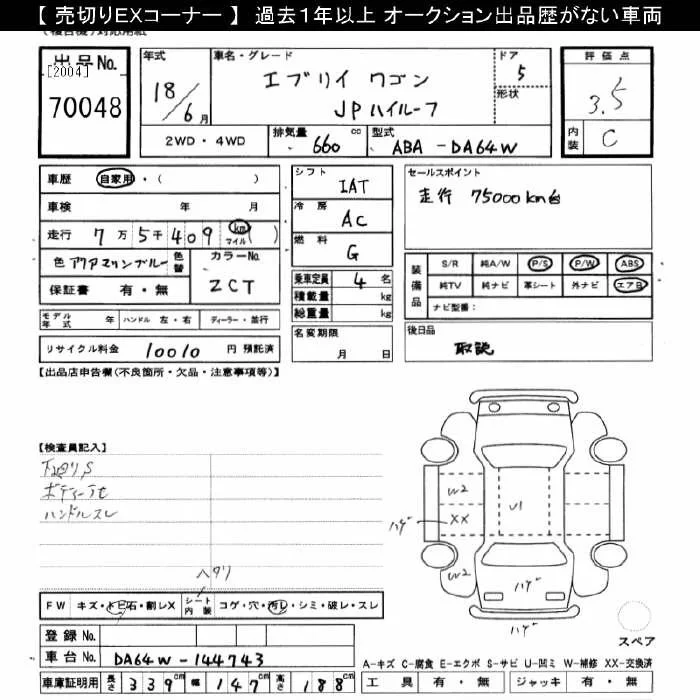 【 売切りEXコーナー 】 過去１年以上 オークション出品歴がない車両
出品No.
[2004]
70048
年式
18/6月
車名・グレード
エブリイ ワゴン
JPハイルーフ
ドア
5
形状
評価点
3.5
内装
C
2WD・4WD
排気量
660 cc
型式
ABA - DA64W
車歴 自家用・( )
車検 年 月
走行 7万5千409 km マイル
色 アクアマリンブルー
色替
カラーNo.
ZCT
保証書 有・無
シフト
IAT
冷房
AC
燃料
G
乗車定員 4 名
積載量 kg
総重量 kg
セールスポイント
走行 75000km台
装備品
S/R 純A/W P/S P/W ABS
純TV 純ナビ 革シート 外ナビ エアB
ナビ型番：
モデル年式 年 ハンドル 左・右 ディーラー・並行
リサイクル料金 10010 円 預託済
名変期限
月 日
後日品
取説
【出品店申告欄(不良箇所・欠品・注意事項等)】
【検査員記入】
下廻りS
ハンドルスレ
ヘタリ
W2
XX
W2
U1
ハゲ
ハゲ
ハゲ
FW キズ・トビ石・割レX
シート内装
コゲ・穴・汚レ・シミ・破レ・スレ
登録 No.
車台 No. DA64W-144743
車庫証明用 長さ 339cm 幅 147cm 高さ 188cm
スペア
A-キズ C-腐食 E-エクボ S-サビ U-凹ミ W-補修 XX-交換済
工具 有・無 ジャッキ 有・無